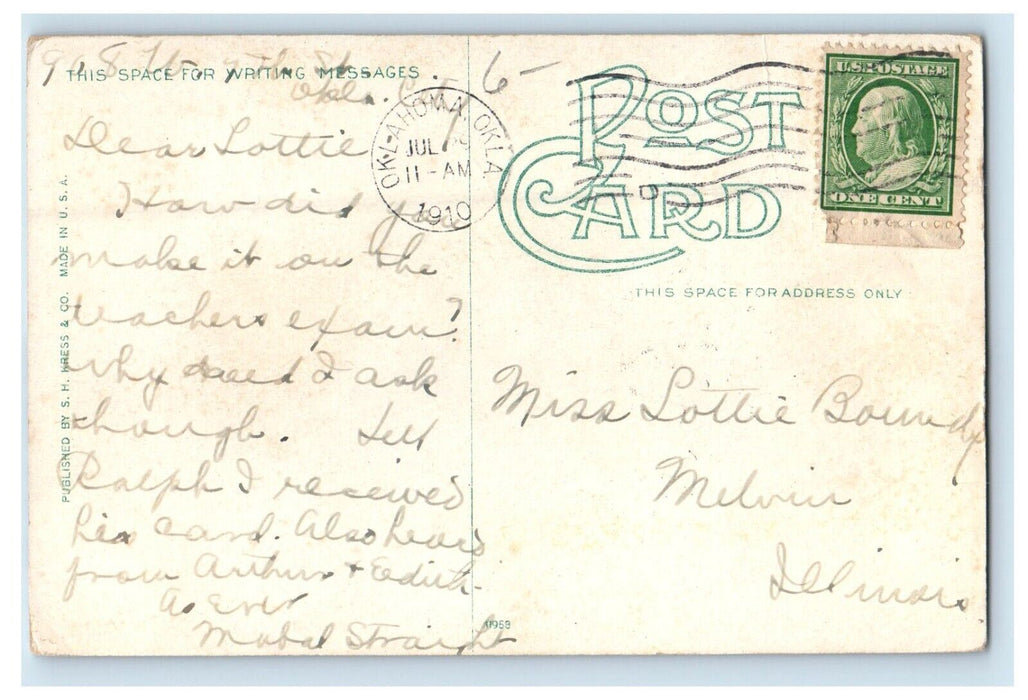 THIS SPACE FOR WRITING MESSAGES
Okla. 
Dear Lottie
How did you
make it on the
teachers exam?
why need I ask
though. Tell
Ralph I received
his card. Also heard
from Arthur + Edith.
As Ever
Mabel Straight
PUBLISHED BY S. H. KRESS & CO. MADE IN U.S.A.
11953
6—
OKLAHOMA, OKLA
JUL
11-AM
1910
POST
CARD
U.S. POSTAGE
ONE CENT
THIS SPACE FOR ADDRESS ONLY
Miss Lottie Boundy
Melvin
Illinois